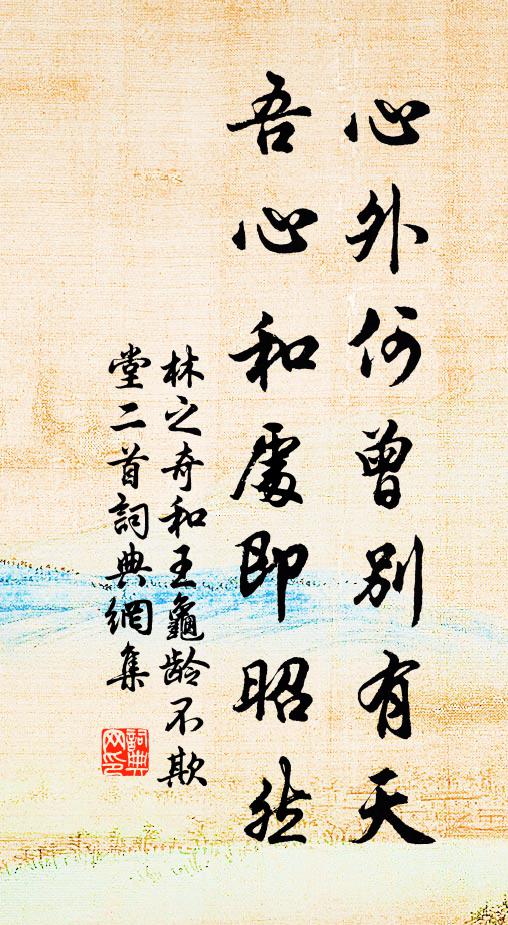 心外何曾別有天
吾心和處即昭然
林之奇和王龜龄不欺
堂二首詞典網集
詞典
网印